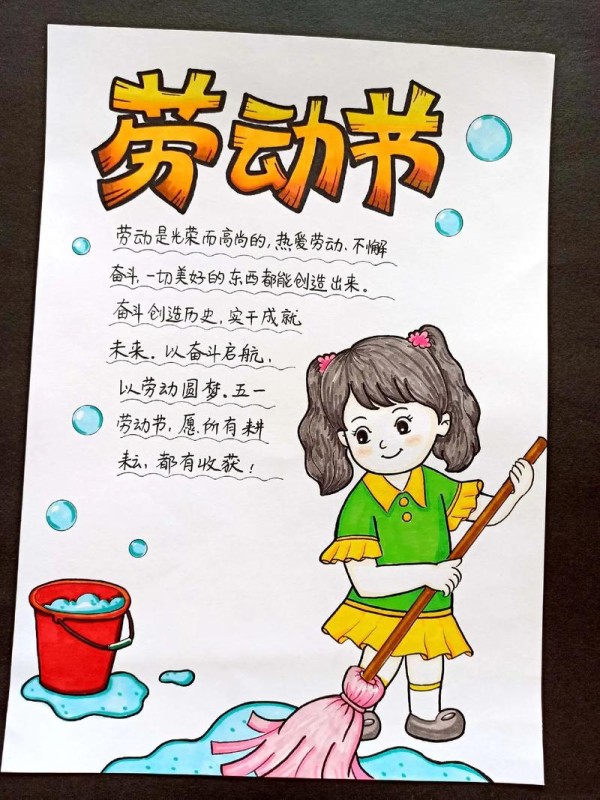 劳动节
劳动是光荣而高尚的,热爱劳动.不懈
奋斗,一切美好的东西都能创造出来。
奋斗创造历史,实干成就
未来。以奋斗启航,
以劳动圆梦。五一
劳动节,愿所有耕
耘,都有收获!